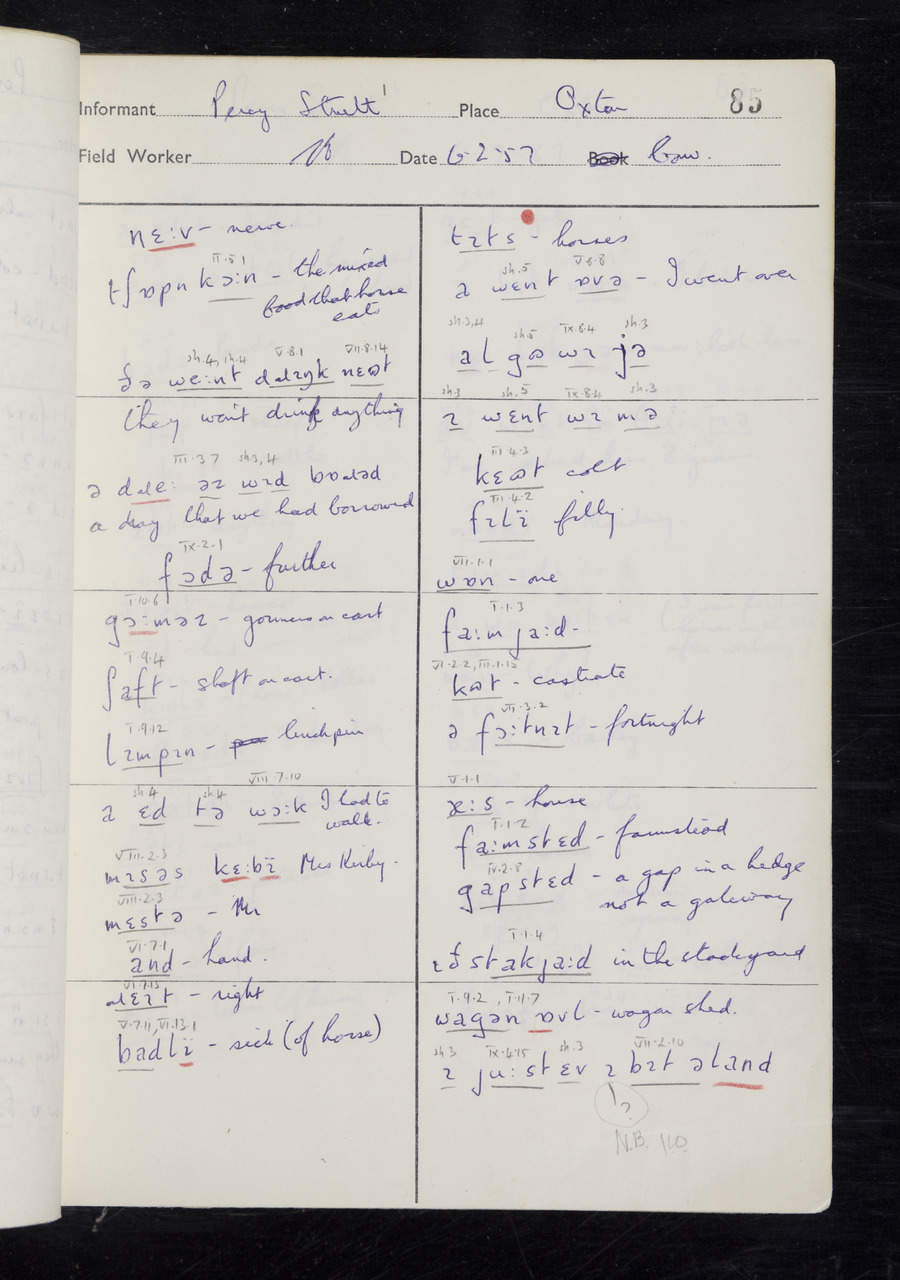 Informant Percy Strutt Place Oxton 85
Field Worker Date 6·2·57 Book Con.
nɛ:v - nerve
II·5·1
tʃɒpn kɔ:n - the mixed
food that horse
eats
sh.4, sh.4 V·8·1 VII·8·14
ðə we:nt dɹɪŋk nɛɷt
they won't drink anything
III·3·7 sh3,4
a dray that we had borrowed
IX·2·1
fədə - further
I·10·6
gɔ:məz - gormers on cart
I·9·4
ʃaft - shaft on cart.
I·9·12
lɪmpɪn - linchpin
sh.4 sh.4 VIII·7·10
a ɛd tə wɔ:k I had to
walk.
VIII·2·3
mɪsəs kɛ:bï Mrs Kirby.
VIII·2·3
mɛstə - Mr
VI·7·1
and - hand.
VI·7·13
ɹɛɪt - right
V·7·11, VI·13·1
badlï - sick (of horse)
tɪts - horses
sh.5 V·8·8
a wɛnt ɒvə - I went over
sh.3,4 sh.5 IX·8·4 sh.3
al gɷ wɪ jə
sh.3 sh.5 IX·8·4 sh.3
ɪ wɛnt wɪ mə
III·4·3
kɛɷt colt
III·4·2
fɪlï filly
VII·1·1
wɒn - one
I·1·3
fa:m ja:d -
VI·2·2, III·1·15
kɷt - castrate
VII·3·2
ə fɔ:tnɪt - fortnight
V·1·1
æ:s - house
I·1·2
fa:mstɛd - farmstead
IV·2·8
gapstɛd - a gap in a hedge
not a gateway
I·1·4
ɪð stakja:d in the stackyard
I·9·2, I·11·7
wagən ɒvl - wagon shed.
sh3 IX·4·15 sh.3 VII·2·10
ɪ ju:st ɛv ɪ bɪt əland
?
N.B. 110